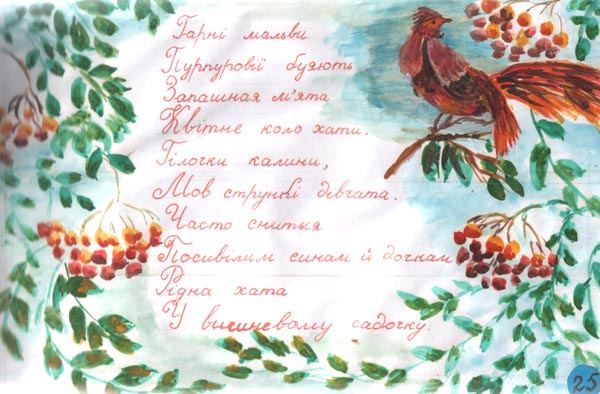 Гарні мальви
Пурпурові буяють
Запашная м'ята
Квітне коло хати.
Гілочки калини,
Мов стрункі дівчата.
Часто сниться
Посивілим синам й дочкам
Рідна хата
У вишневому садочку.
25